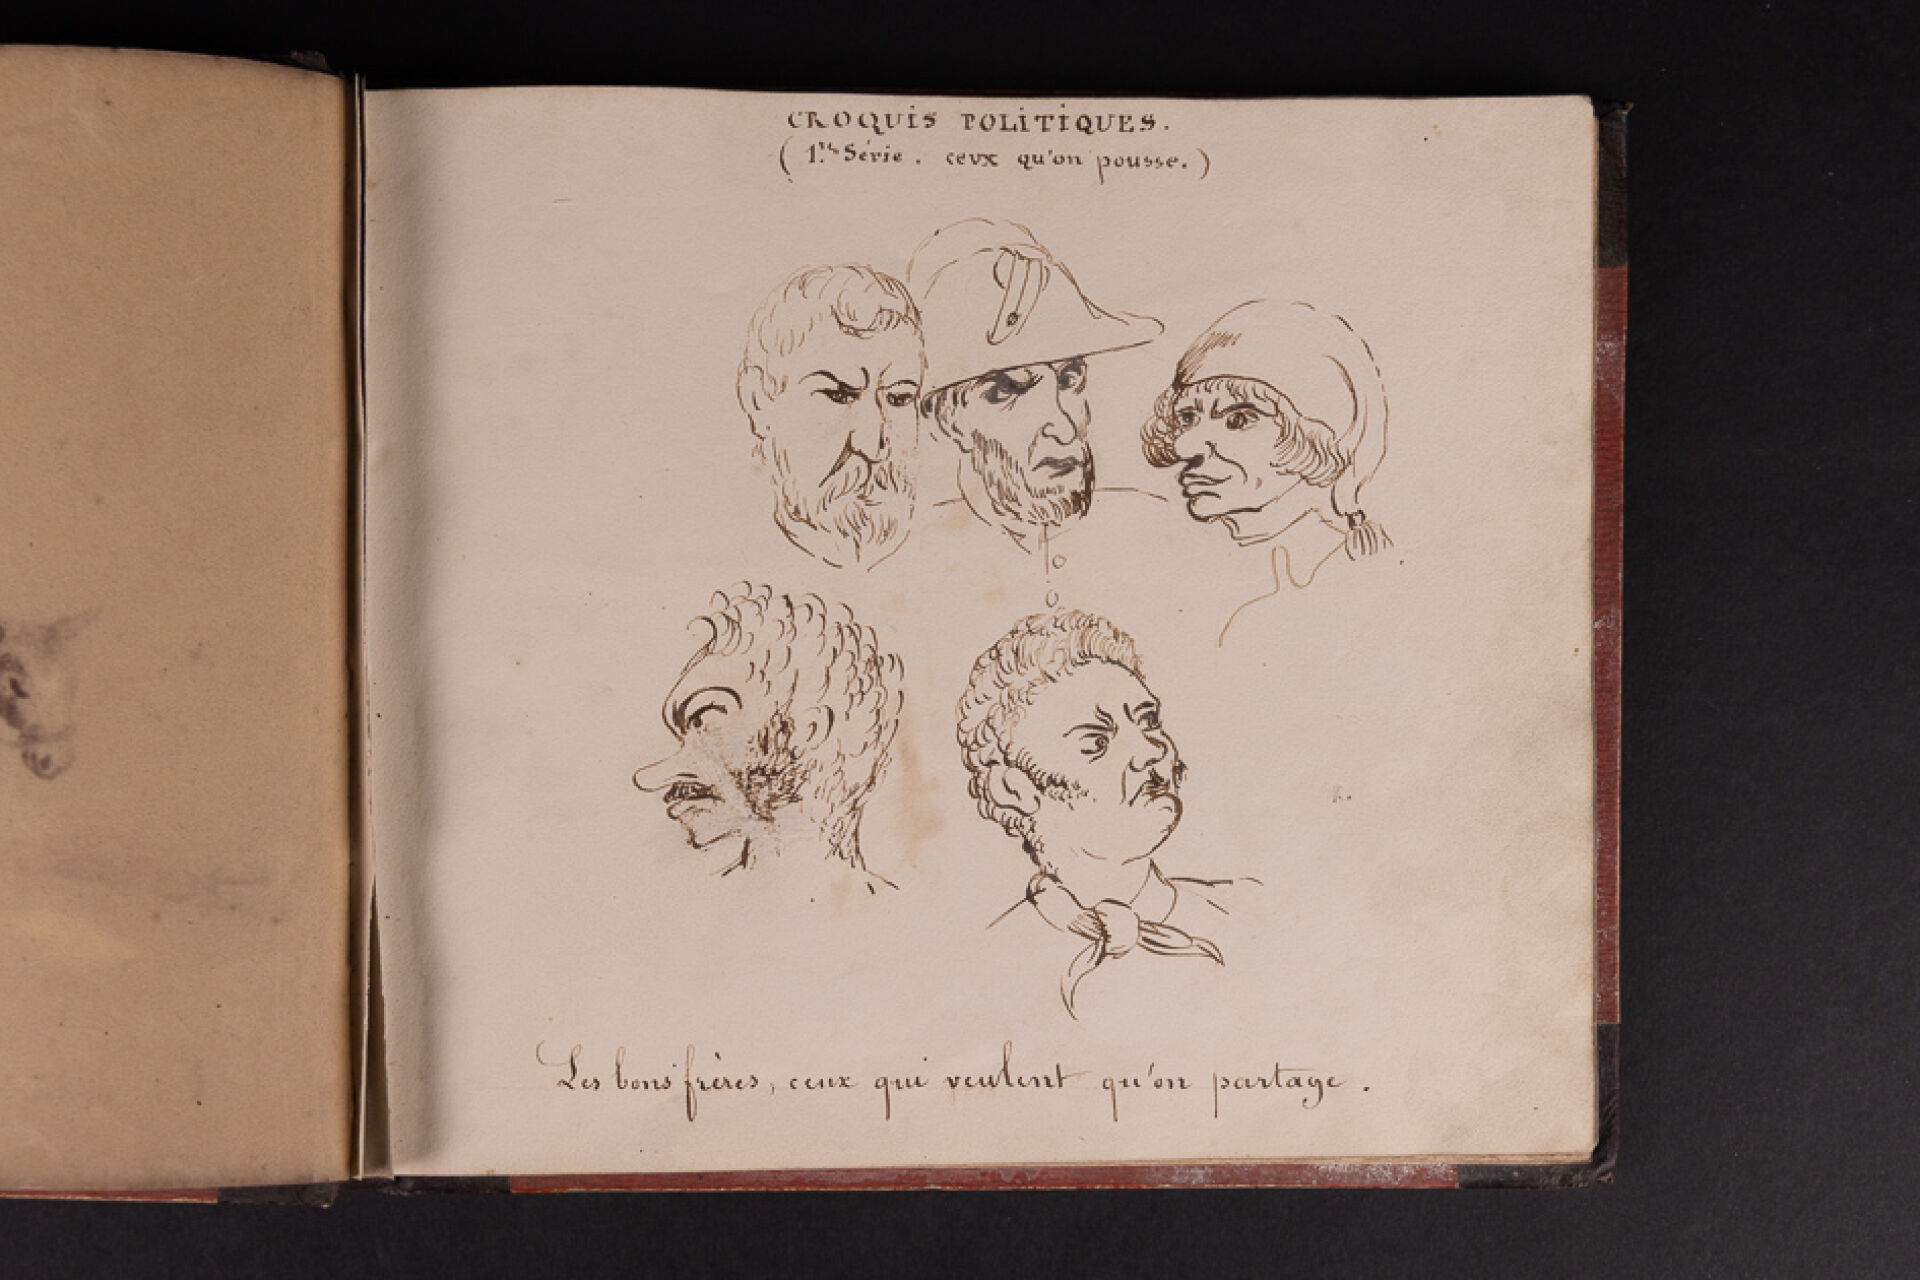 CROQUIS POLITIQUES.
(1re Série. ceux qu'on pousse.)
Les bons frères, ceux qui veulent qu'on partage.